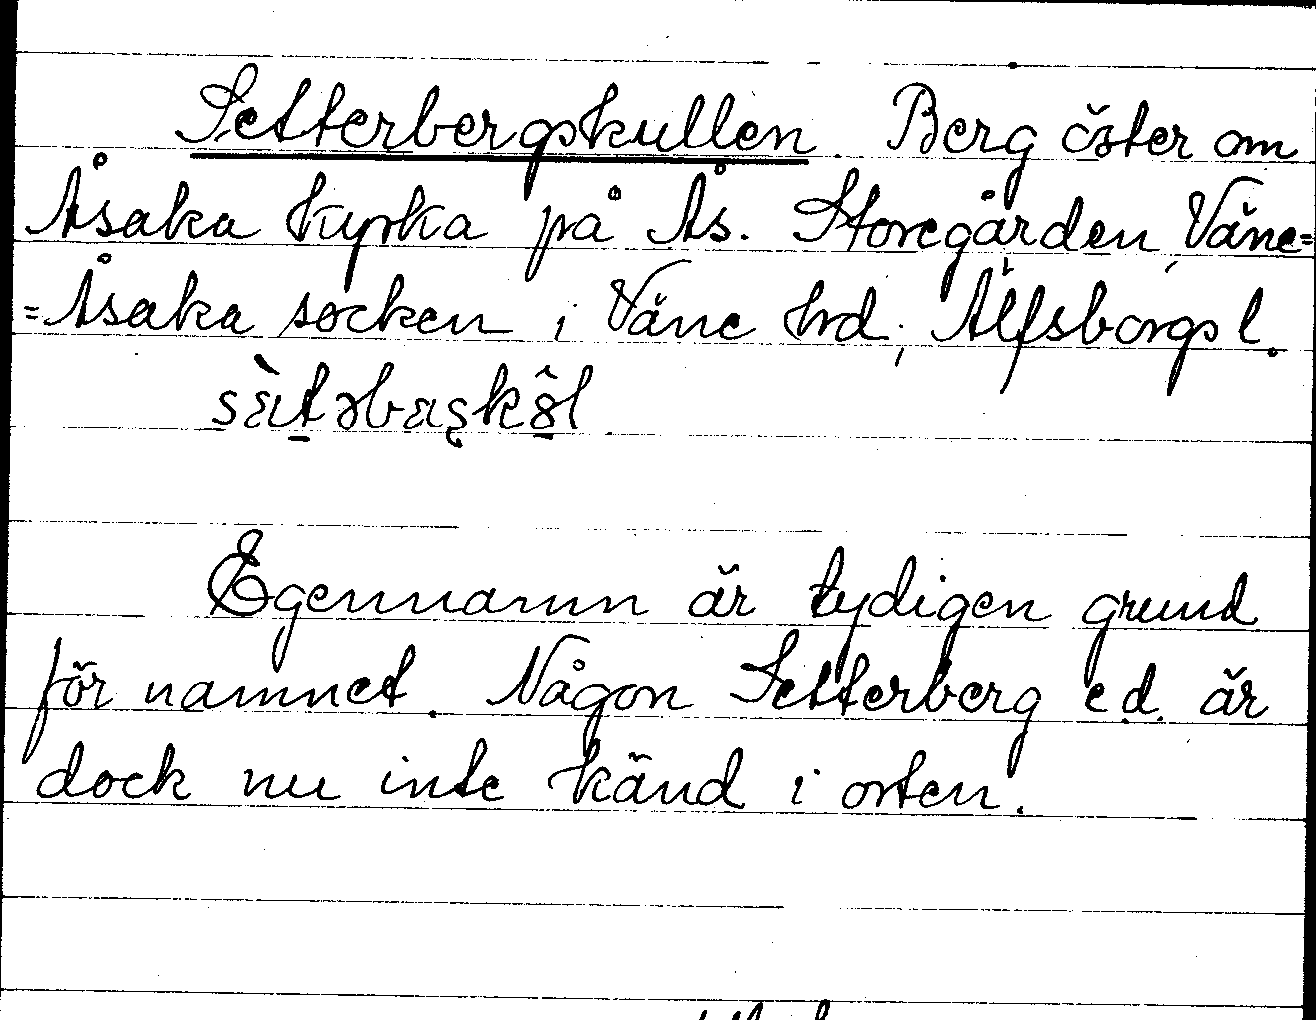 Setterbergskullen. Berg öster om
Åsaka kyrka på Ås. Storegården, Väne=
=Åsaka socken i Väne hrd, Älfsborgs l.
sä̀təbäşkö̂l
Egennamn är tydigen grund
för namnet. Någon Setterberg e.d. är
dock nu inte känd i orten.